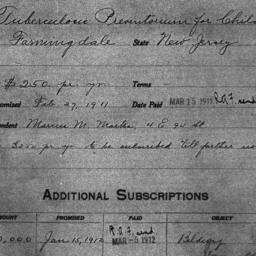 Tuberculous Preventorium for Chil
Farmingdale State New Jersey
$250. pr yr. Terms
omised Feb. 27, 1911 Date Paid MAR 15 1911 R.A.F. end.
ndent Marcus M. Marks, 4 E. 94 St.
$250 pr yr to be subscribed till further no
ADDITIONAL SUBSCRIPTIONS
MOUNT PROMISED PAID OBJECT
R.A.F. end.
0,000 Jan 15, 1912 MAR -5 1912 Bldgs